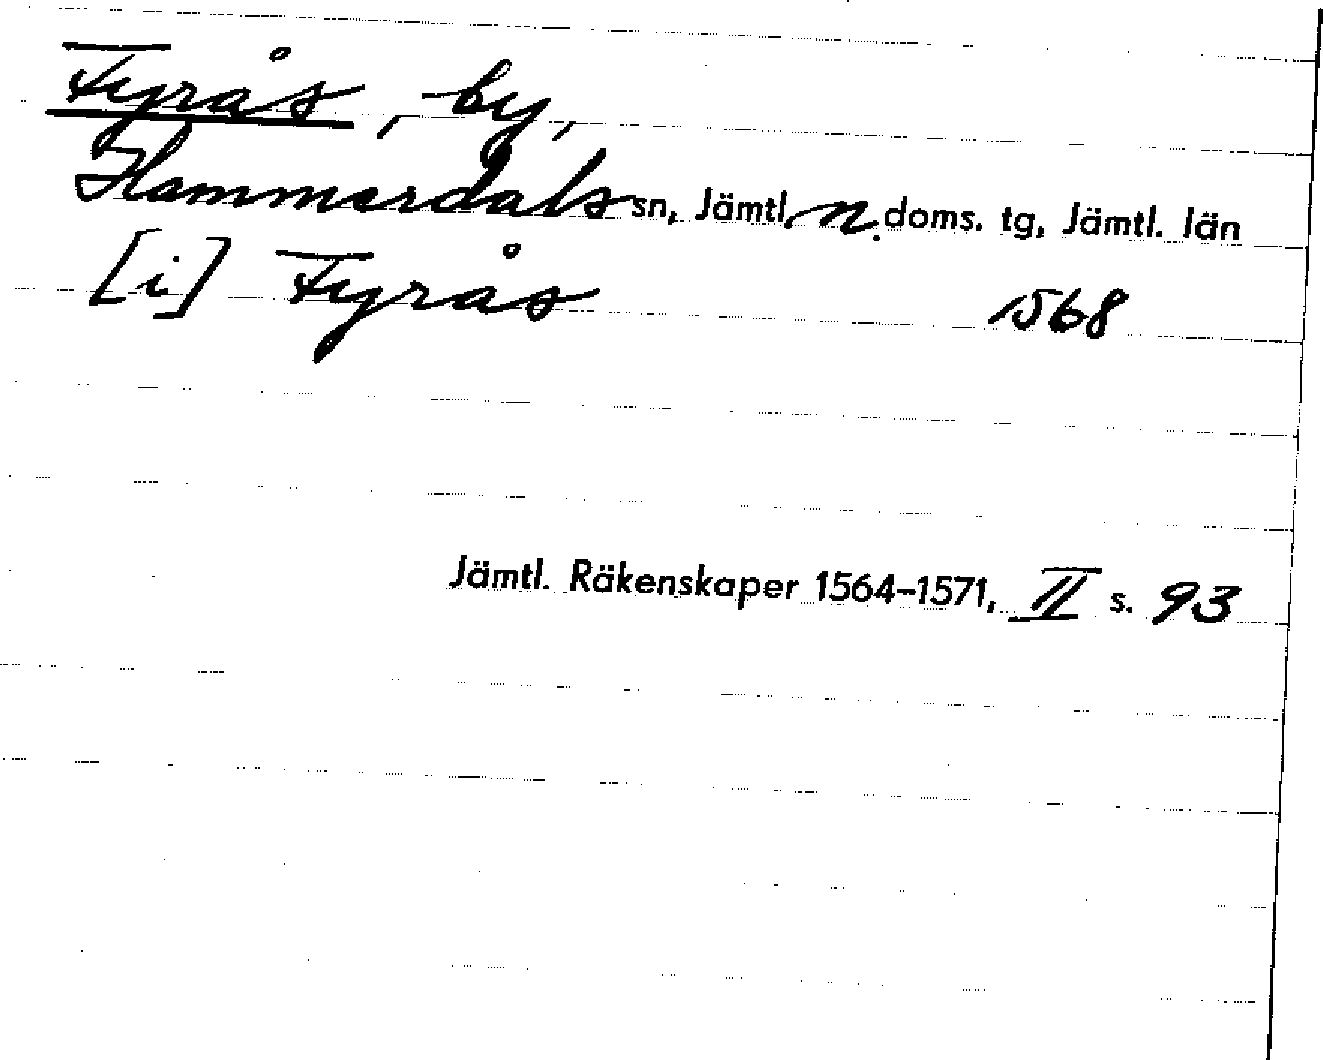 Fyrås, by,
Hammerdals sn, Jämtl. n. doms. tg, Jämtl. län
[i] Fyrås 1568
Jämtl. Räkenskaper 1564–1571, II s. 93